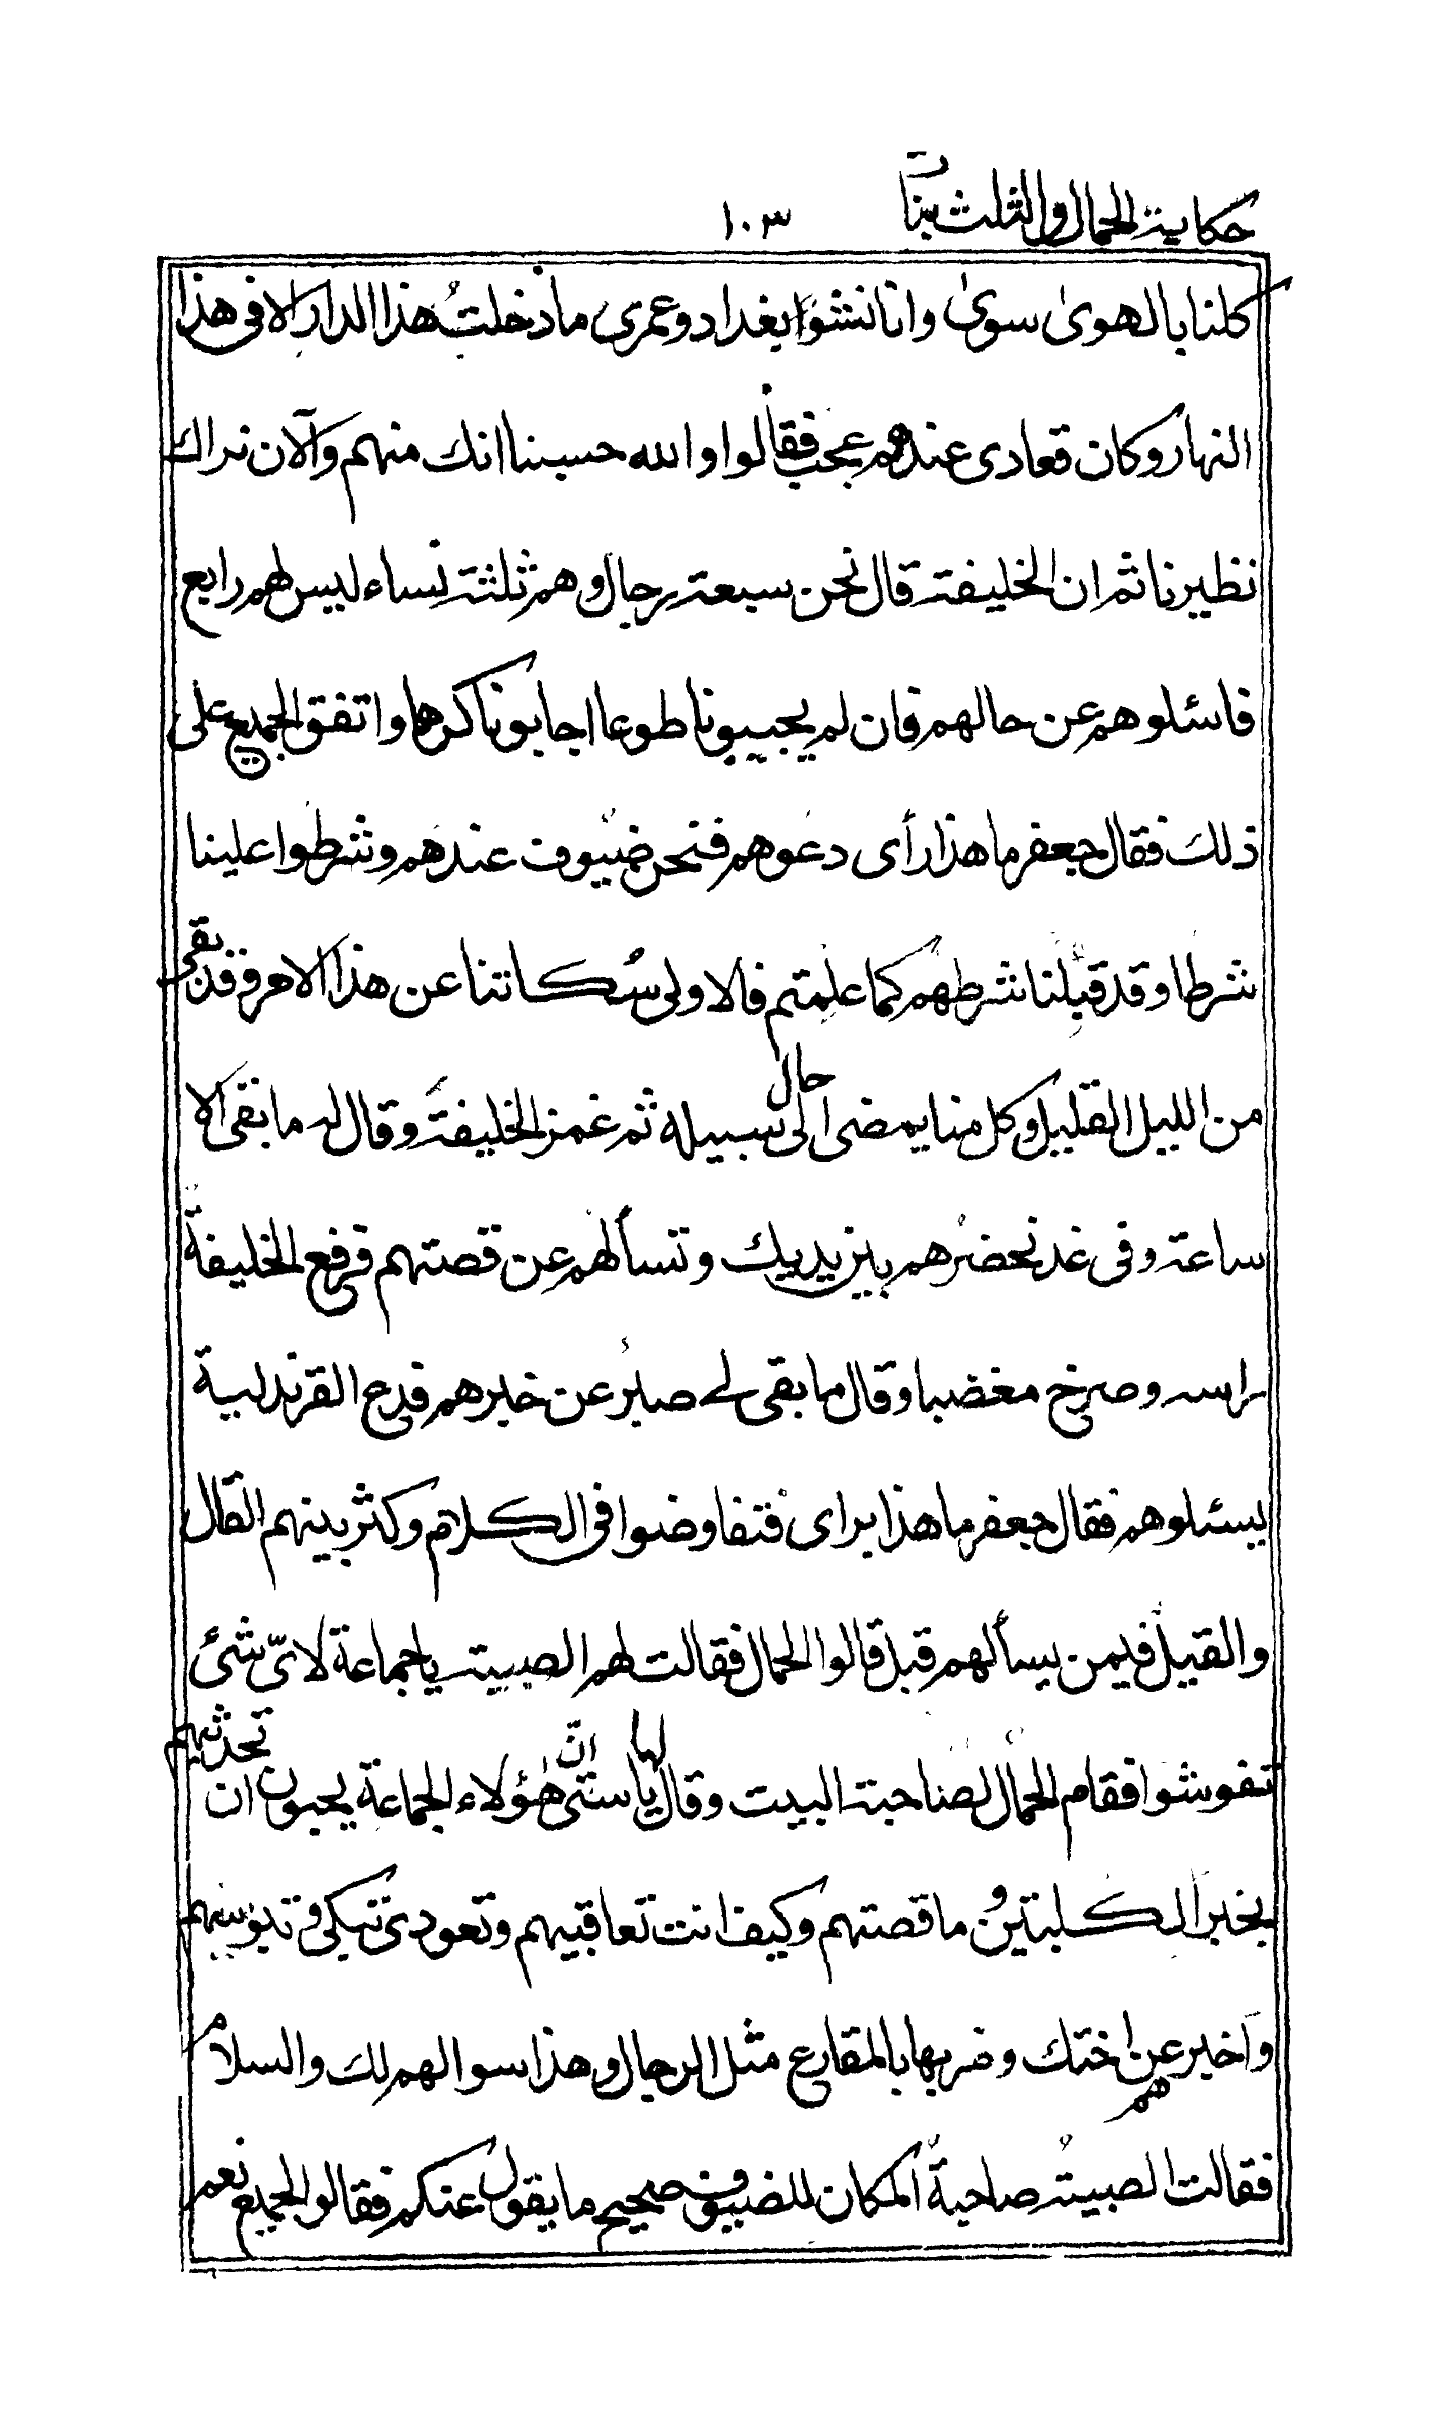 حكاية الحمال والثلث بنات
١٠٣
كلنا بالهوى سوى وانا نشوا بغداد وعمرى ما دخلت هذا الدار الا فى هذا
النهار وكان قعادى عندهم عجب فقالوا والله حسبنا انك منهم والآن نراك
نظيرنا ثم ان الخليفة قال نحن سبعة رجال وهم ثلثة نساء ليس لهم رابع
فاسئلوهم عن حالهم فان لم يجيبونا طوعا اجابونا كرها واتفق الجميع على
ذلك فقال جعفر ما هذا رأى دعوهم فنحن ضيوف عندهم وشرطوا علينا
شرطا وقد قبلنا شرطهم كما علمتم فالاولى سكاتنا عن هذا الامر وقد بقى
من الليل القليل وكل منا يمضى الى حال سبيله ثم غمز الخليفة وقال له ما بقى الا
ساعة وفى غد نحضرهم بين يديك وتسألهم عن قصتهم فرفع الخليفة
راسه وصرخ مغضبا وقال ما بقى لى صبر عن خبرهم فدع القرندلية
يسئلوهم فقال جعفر ما هذا براى فتفاوضوا فى الكلام وكثر بينهم القال
والقيل فيمن يسألهم قبل قالوا الحمال فقالت لهم الصبية يا جماعة لاىّ شئ
تغوشوا فقام الحمال لصاحبة البيت وقال لها يا ستى انّ هؤلاء الجماعة يحبون ان تحدثيهم
بخبر الكلبتين وما قصتهم وكيف انت تعاقبيهم وتعودى تبكى وتبوسيهم
واخبرهم عن اختك وضربها بالمقارع مثل الرجال وهذا سوالهم لك والسلام
فقالت الصبية صاحبة المكان للضيوف صحيح ما يقول عنكم فقالوا الجميع نعم